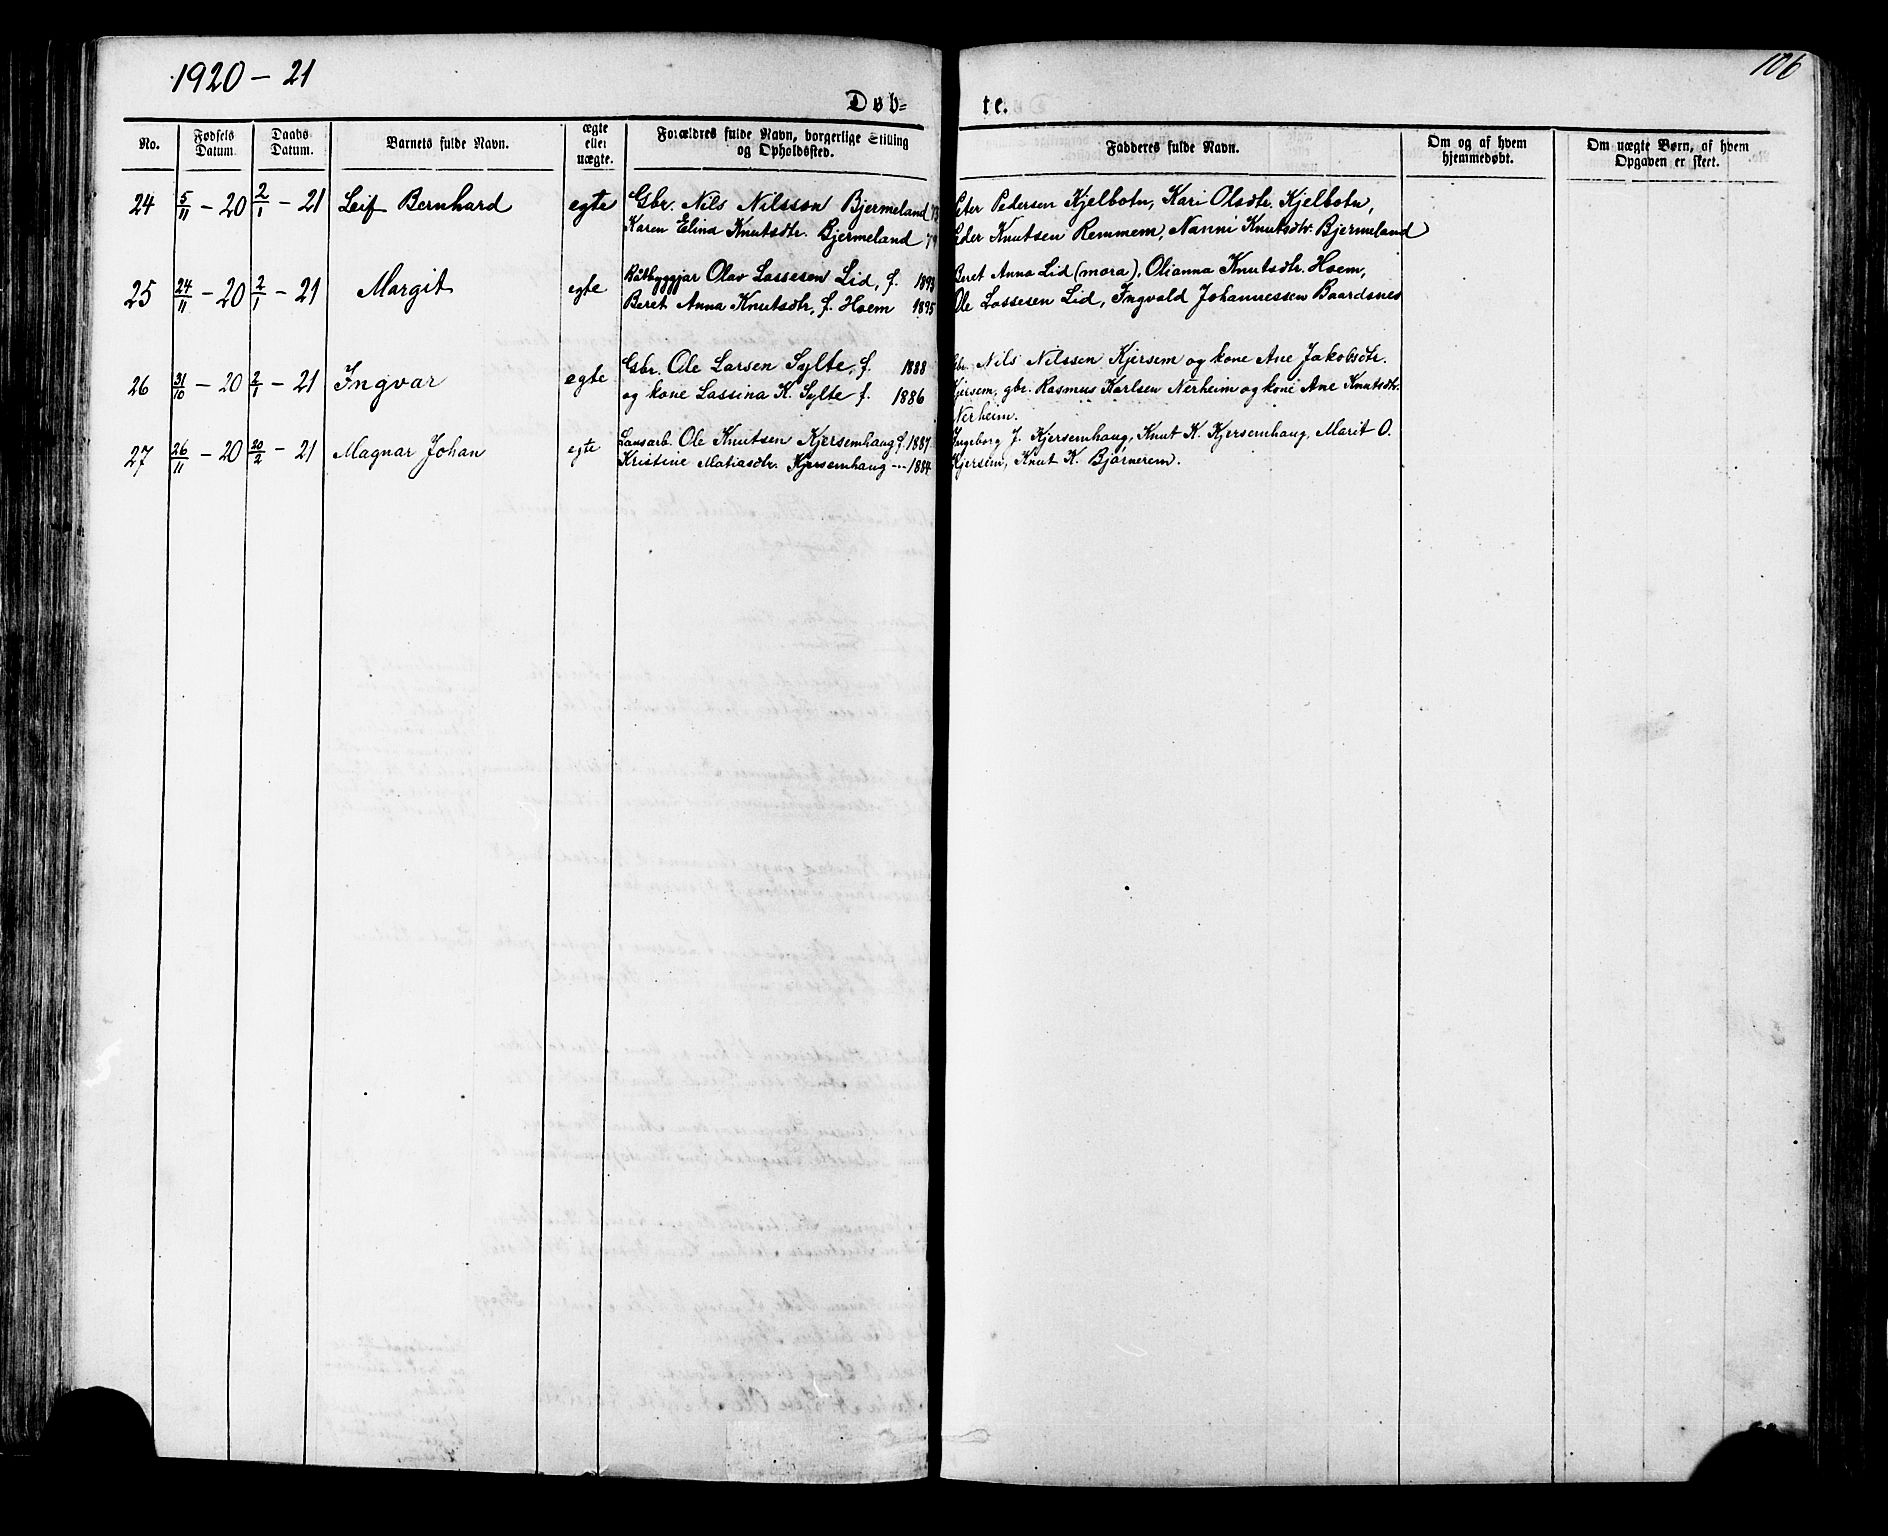 1920 – 21
106
Døb=
te.
No.
Fødsels Datum.
Daabs Datum.
Barnets fulde Navn.
ægte eller uægte.
Forældres fulde Navn, borgerlige Stilling og Opholdssted.
Faddernes fulde Navn.
Om og af hvem hjemmedøbt.
Om uægte Børn, af hvem Opgaven er skeet.
24 5/11 – 20 2/1 – 21 Leif Bernhard egte Gbr. Nils Nilsson Bjermeland
Karen Elina Knutsdtr. Bjermeland
Peter Pedersen Kjelbotn, Kari Olsdtr. Kjelbotn,
Peder Knutsen Remmem, Nanni Knutsdtr. Bjermeland
25 24/11 – 20 2/1 – 21 Margit egte Båtbyggjar Olav Lassesen Lid, f. 1893
Beret Anna Knutsdtr, f. Hoem 1895
Beret Anna Lid (mora), Olianna Knutsdtr. Hoem,
Ole Lassesen Lid, Ingvald Johannessen Baardsnes
26 31/10 – 20 2/1 – 21 Ingvar egte Gbr. Ole Larsen Sylte, f. 1888
og kone Lassina K. Sylte f. 1886
Gbr. Nils Nilssen Kjersem og kone Ane Jakobsdtr.
Kjersem, gbr. Rasmus Karlsen Nerheim og kone Ane Knutsdtr.
Nerheim.
27 26/11 – 20 20/2 – 21 Magnar Johan egte Lausarb. Ole Knutsen Kjersemhaug f. 1887
Kristine Matiasdtr. Kjersemhaug --- 1884
Ingeborg J. Kjersemhaug, Knut K. Kjersemhaug, Marit O.
Kjersem, Knut K. Bjørnerem.